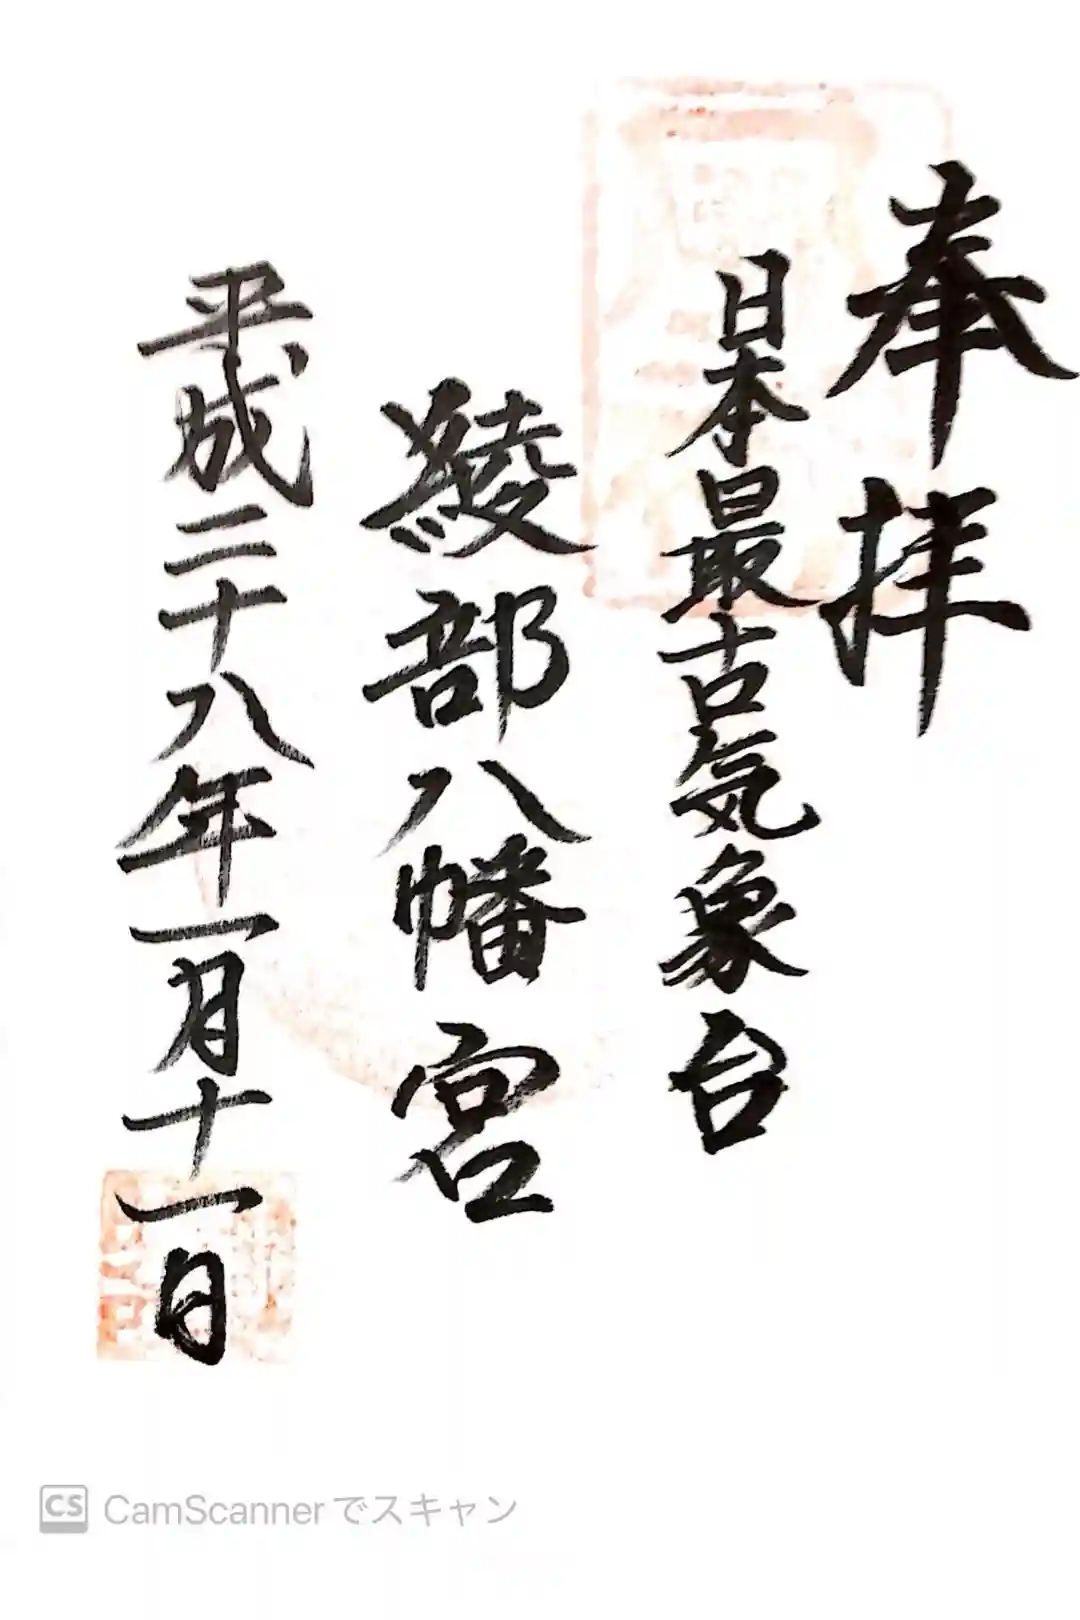 奉拝
日本最古気象台
綾部八幡宮
平成二十八年一月十一日
CS CamScannerでスキャン